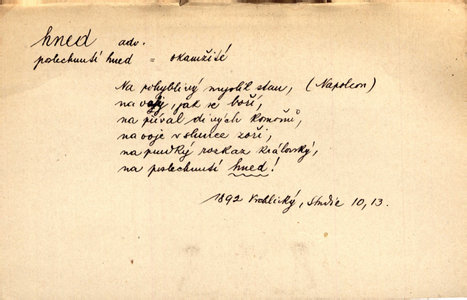 hned adv.
poslechnutí hned = okamžité
Na pohyblivý myslil stan, (Napoleon)
na voje, jak se boří,
na příval divých komoňů,
na voje v slunce zoři,
na prudký rozkaz královský,
na poslechnutí hned!
1892 Vrchlický, Studie 10, 13.